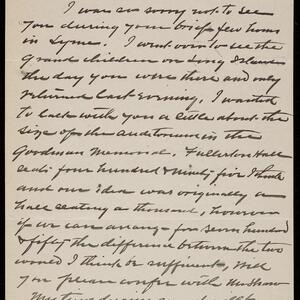 I was so sorry not to see
you during your brief few hours
in Lyme. I went over to see the
grand children on Long Island
the day you were there and only
returned last evening. I wanted
to talk with you a little about the
size of the auditorium in the
Goodman Memorial. Fullerton Hall
seats four hundred & ninety five I think
and our idea was originally a
hall seating a thousand, however
if we can arrange for seven hundred
& fifty the difference between the two
would I think be sufficient, Will
you please confer with Mr Shaw